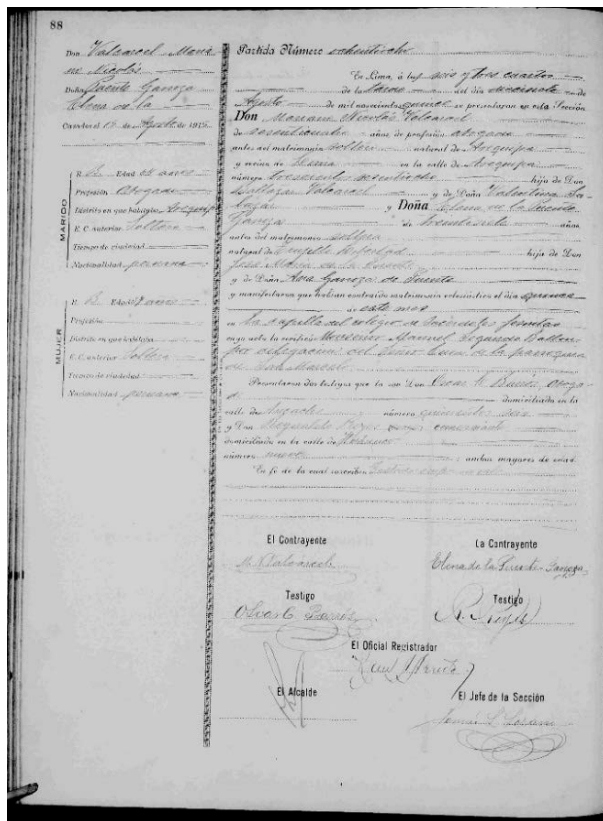 88
Don Valcarcel Maria
no Nicolás
Doña Puente Ganoza
Elena de la
Casados el 15 de Agosto de 1915
MARIDO
R. Edad años
Profesión Abogado
Distrito en que habitaba Arequip
E. C. anterior Soltero
Tiempo de viudedad
Nacionalidad peruana
MUJER
R. Edad años
Profesión
Distrito en que habitaba
E. C. anterior Soltera
Tiempo de viudedad
Nacionalidad peruana
Partida Número ochentiocho
En Lima, á las seis y tres cuartos
de la tarde del día diecisiete de
Agosto de mil novecientos quince se presentaron en esta Sección
Don Mariano Nicolás Valcarcel
de sesentiocho años de profesión abogado
antes del matrimonio soltero natural de Arequipa
y vecino de Lima en la calle de Arequipa
número trescientos sesentiocho hijo de Don
Baltazar Valcarcel y de Doña Valentina
y Doña Elena de la Puente
Ganoza de treintisiete años
antes del matrimonio soltera
natural de Trujillo hija de Don
José María de la Puente
y de Doña Ana Ganoza de Puente
y manifestaron que habían contraído matrimonio eclesiástico el día quince
de este mes
en la capilla del colegio de
ante el Monseñor Manuel Segundo Ballon
por delegación del Señor Cura de la parroquia
de San Marcelo
Presentaron dos testigos que lo son Don Oscar C. Barrós, aboga-
do domiciliado en la
calle de Ayacucho número quinientos seis
y Don Rigoberto Reyes comerciante
domiciliado en la calle de
número nueve ambos mayores de edad.
En fé de lo cual suscriben
El Contrayente
La Contrayente
M. N. Valcárcel
Elena de la Puente Ganoza
Testigo
Testigo
Oscar C. Barrós
R. Reyes
El Oficial Registrador
El Alcalde
El Jefe de la Sección